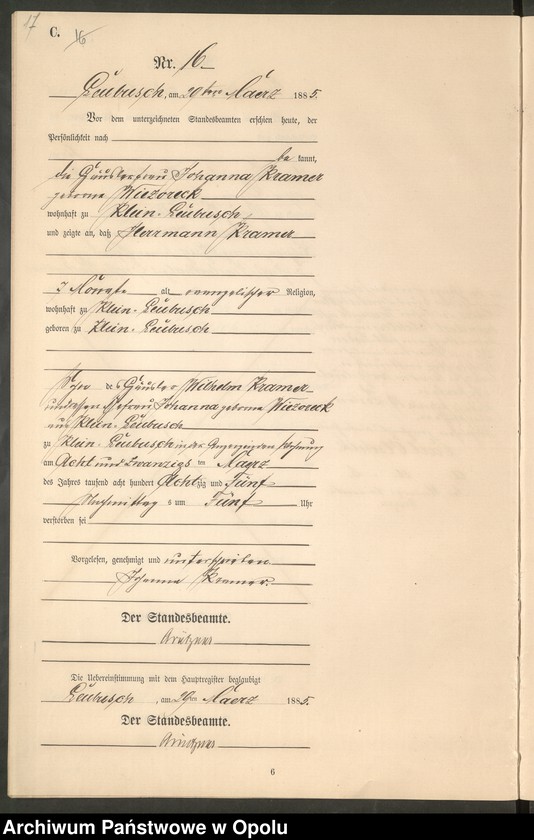 17
C. 16
Nr. 16
Leubusch, am 29ten März 1885.
Vor dem unterzeichneten Standesbeamten erschien heute, der
Persönlichkeit nach
be kannt,
die Häuslerfrau Johanna Kramer
geborne Wiezoreck
wohnhaft zu Klein-Leubusch
und zeigte an, daß Herrmann Kramer
7 Monate alt, evangelischer Religion,
wohnhaft zu Klein-Leubusch
geboren zu Klein-Leubusch
Sohn des Häusler Wilhelm Kramer
und dessen Ehefrau Johanna geborne Wiezoreck
aus Klein-Leubusch
zu Klein-Leubusch in der Wohnung
am Acht und Zwanzigs ten Maerz
des Jahres tausend acht hundert Achtzig und Fünf
Nachmittag s um Fünf Uhr
verstorben sei
Vorgelesen, genehmigt und unterschrieben
Johanna Kramer.
Der Standesbeamte.
Die Uebereinstimmung mit dem Hauptregister beglaubigt
Leubusch, am 29ten Maerz 1885.
Der Standesbeamte.
6
Archiwum Państwowe w Opolu